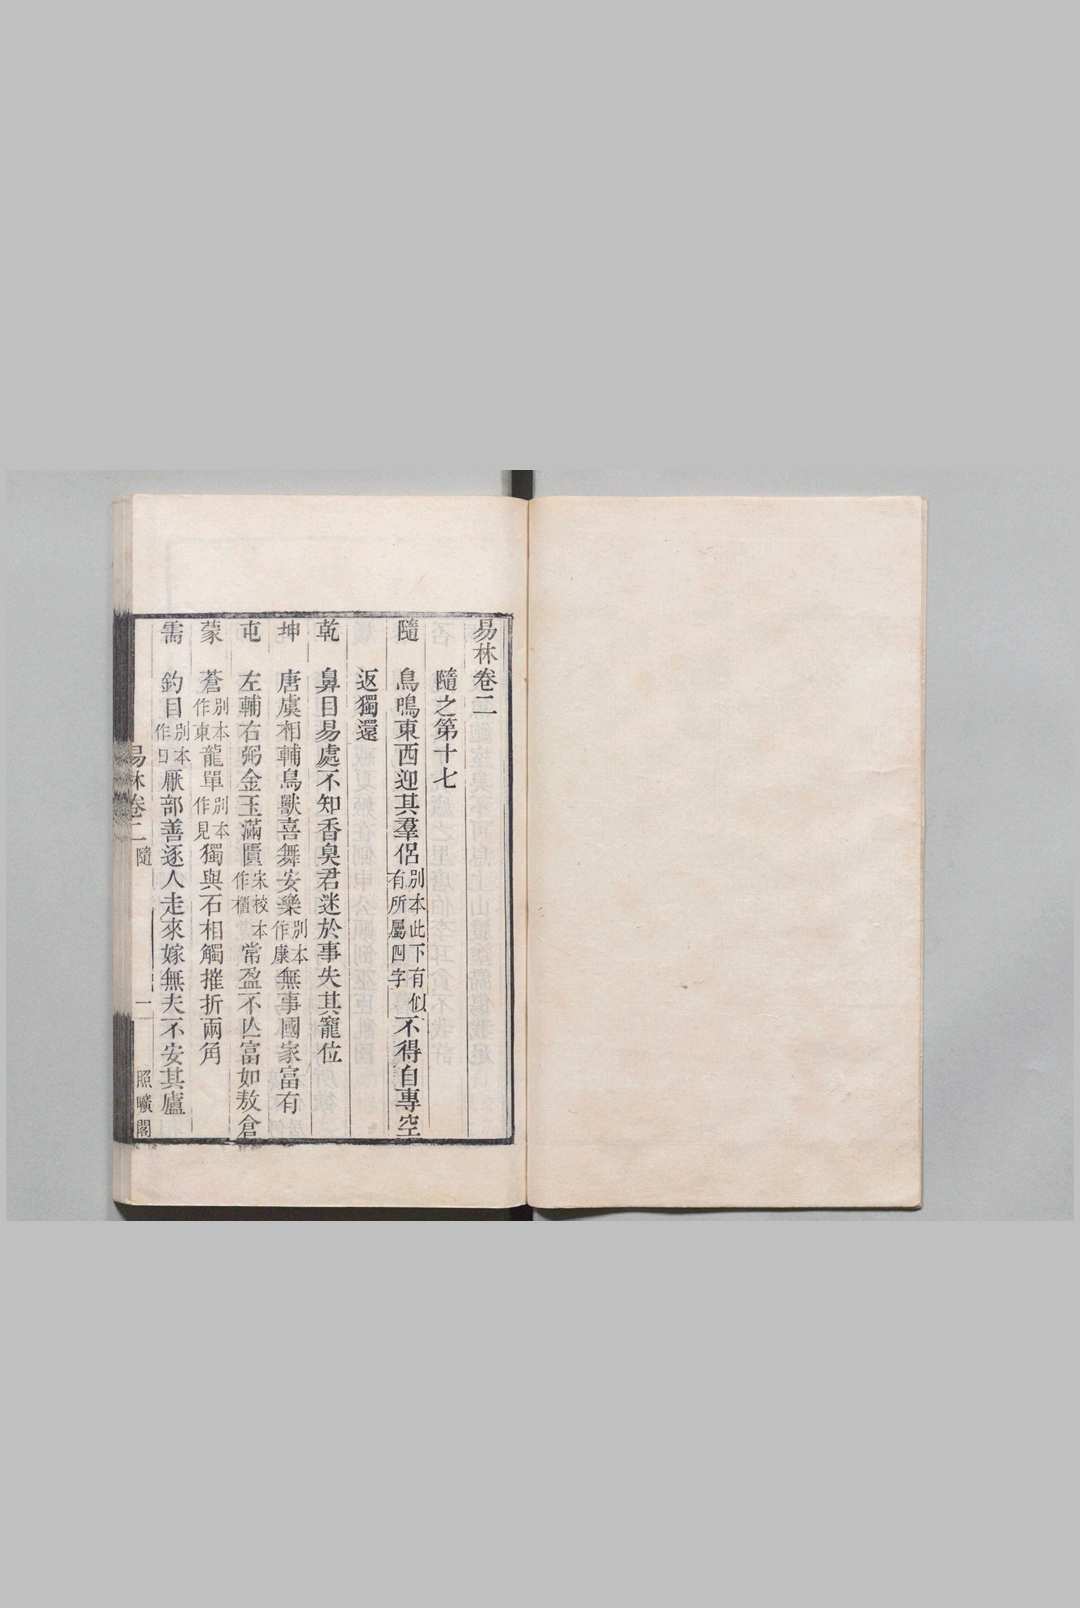 易林卷二
隨之第十七
隨　鳥鳴東西迎其羣侶別本此下有似有所屬四字不得自專空
返獨還
乾　鼻目易處不知香臭君迷於事失其寵位
坤　唐虞相輔鳥獸喜舞安樂別本作康無事國家富有
屯　左輔右弼金玉滿匱宋校本作櫃常盈不亾富如敖倉
蒙　蒼別本作東龍單別本作見獨與石相觸摧折兩角
需　釣目別本作曰厭部善逐人走來嫁無夫不安其廬
易林卷二　隨　一　照曠閣